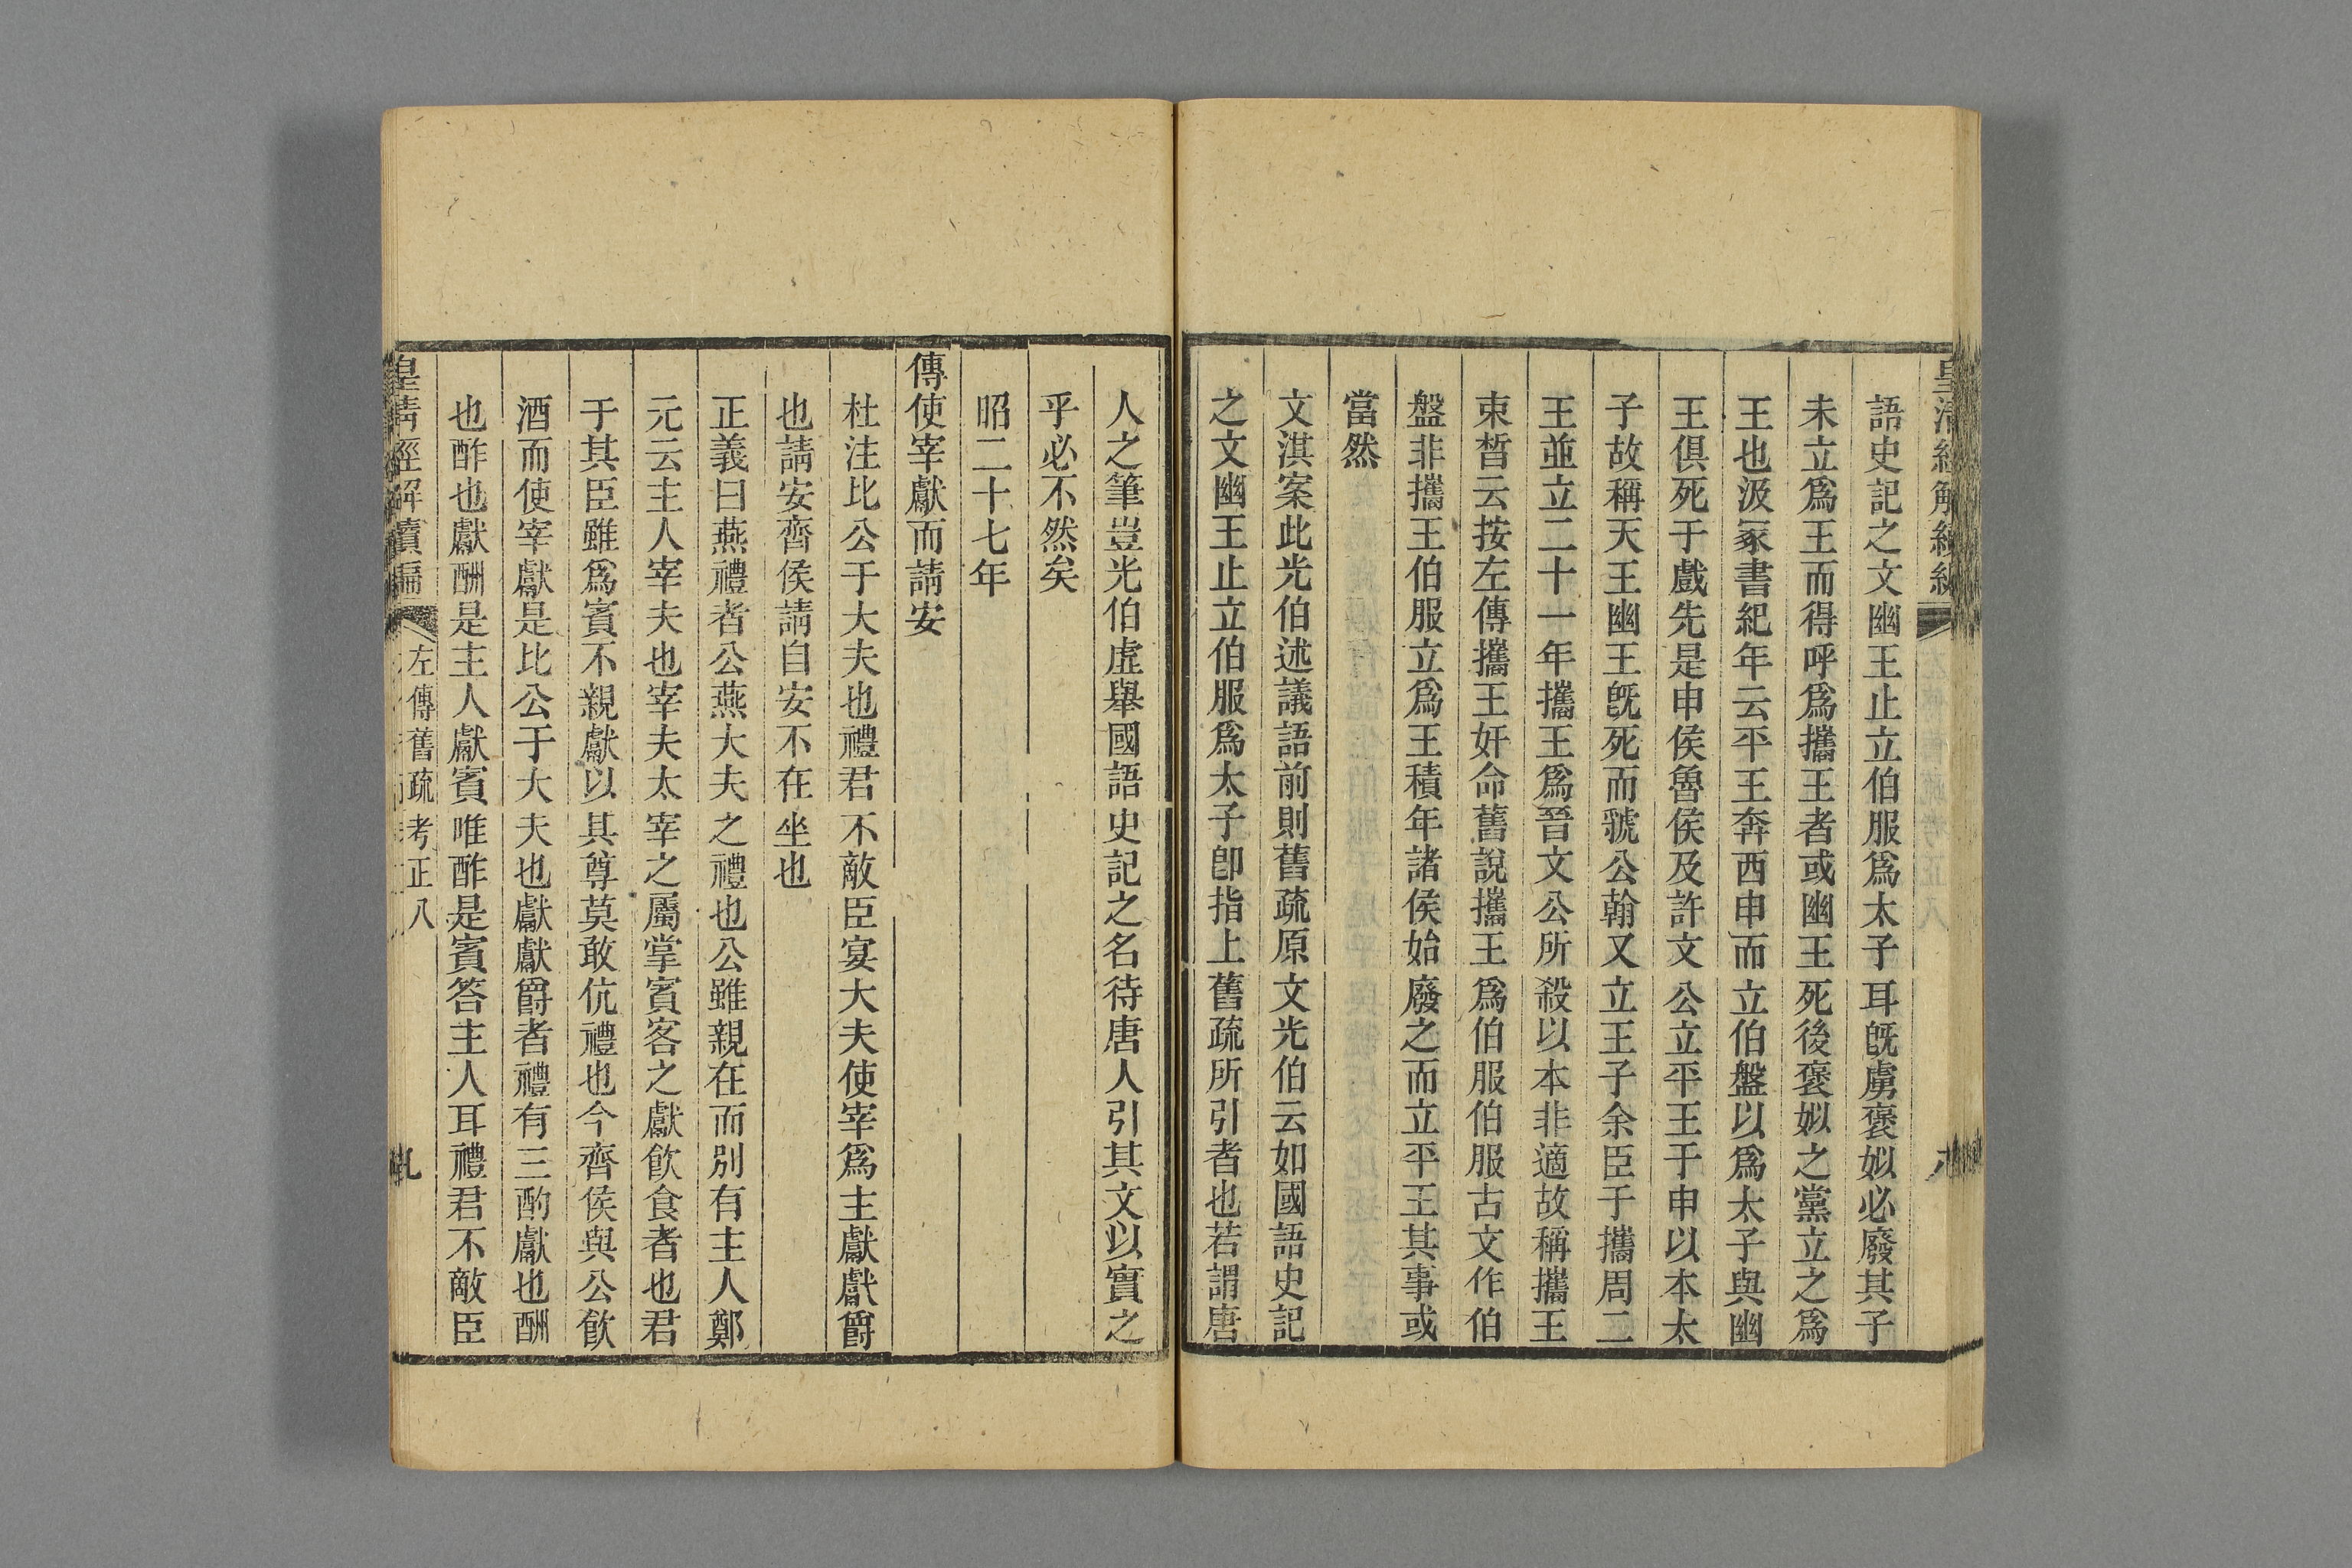 語史記之文幽王止立伯服爲太子耳既虜褒姒必廢其子
未立爲王而得呼爲攜王者或幽王死後褒姒之黨立之爲
王也汲冢書紀年云平王奔西申而立伯盤以爲太子與幽
王俱死于戲先是申侯魯侯及許文公立平王于申以本太
子故稱天王幽王旣死而虢公翰又立王子余臣于攜周二
王並立二十一年攜王爲晉文公所殺以本非適故稱攜王
束晳云按左傳攜王奸命舊說攜王爲伯服伯服古文作伯
盤非攜王伯服立爲王積年諸侯始廢之而立平王其事或
當然
文淇案此光伯述議語前則舊疏原文光伯云如國語史記
之文幽王止立伯服爲太子卽指上舊疏所引者也若謂唐
人之筆豈光伯虛舉國語史記之名待唐人引其文以實之
乎必不然矣
昭二十七年
傳使宰獻而請安
杜注比公于大夫也禮君不敵臣宴大夫使宰爲主獻獻爵
也請安齊侯請自安不在坐也
正義曰燕禮者公燕大夫之禮也公雖親在而別有主人鄭
元云主人宰夫也宰夫太宰之屬掌賓客之獻飮食者也君
于其臣雖爲賓不親獻以其尊莫敢伉禮也今齊侯與公飮
酒而使宰獻是比公于大夫也獻獻爵者禮有三酌獻也酬
也酢也獻酬是主人獻賓唯酢是賓答主人耳禮君不敵臣
皇淸經解續編
左傳舊疏考正八